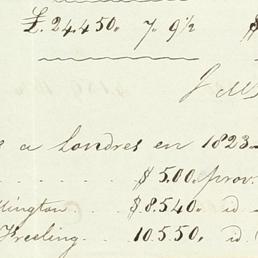 £. 24.450. 7. 9½
J M
e a Londres en 1823
$ 5.00. prov.
llington $ 8.540. id
Freeling. 10.5.50. id